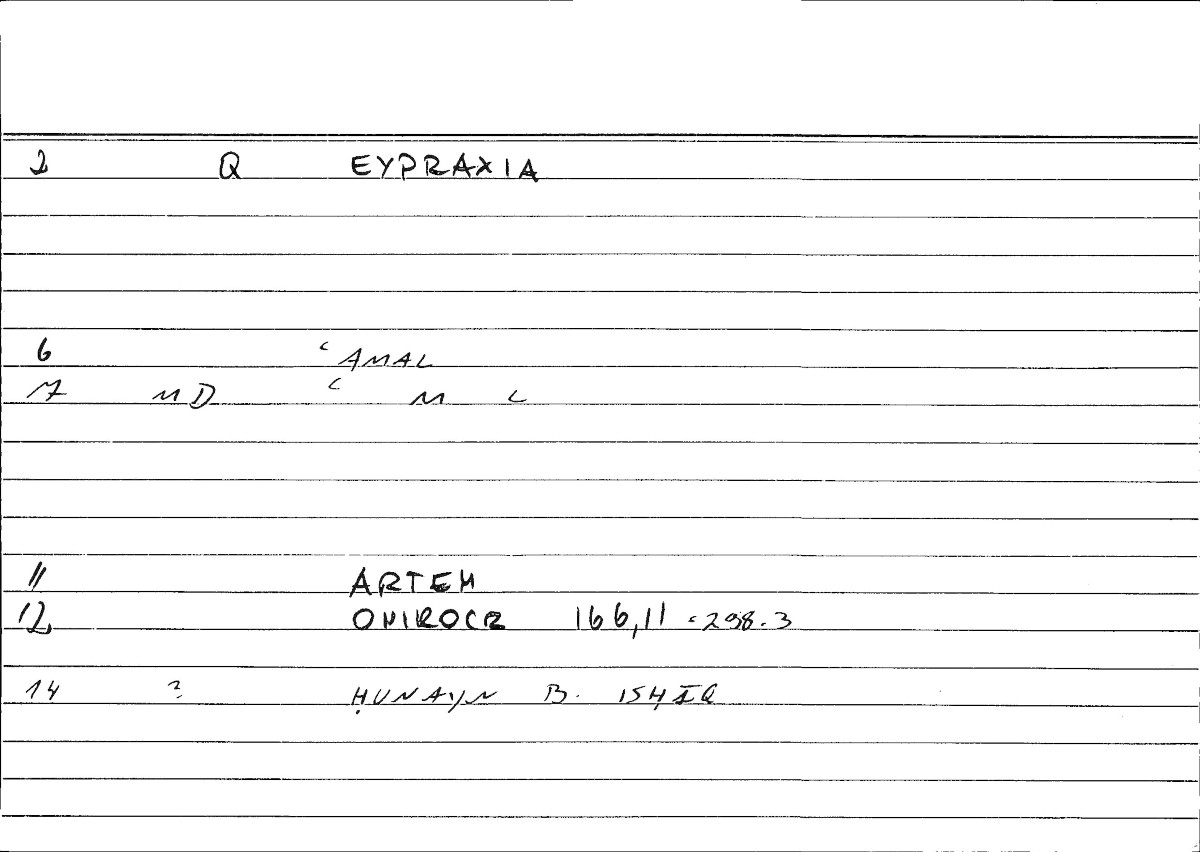 2 Q EYPRAXIA
6 ʿAMAL
7 MD ʿ M L
11 ARTEM
12 ONIROCR 166,11 = 298.3
14 ? ḤUNAYN B. ISḤĀQ